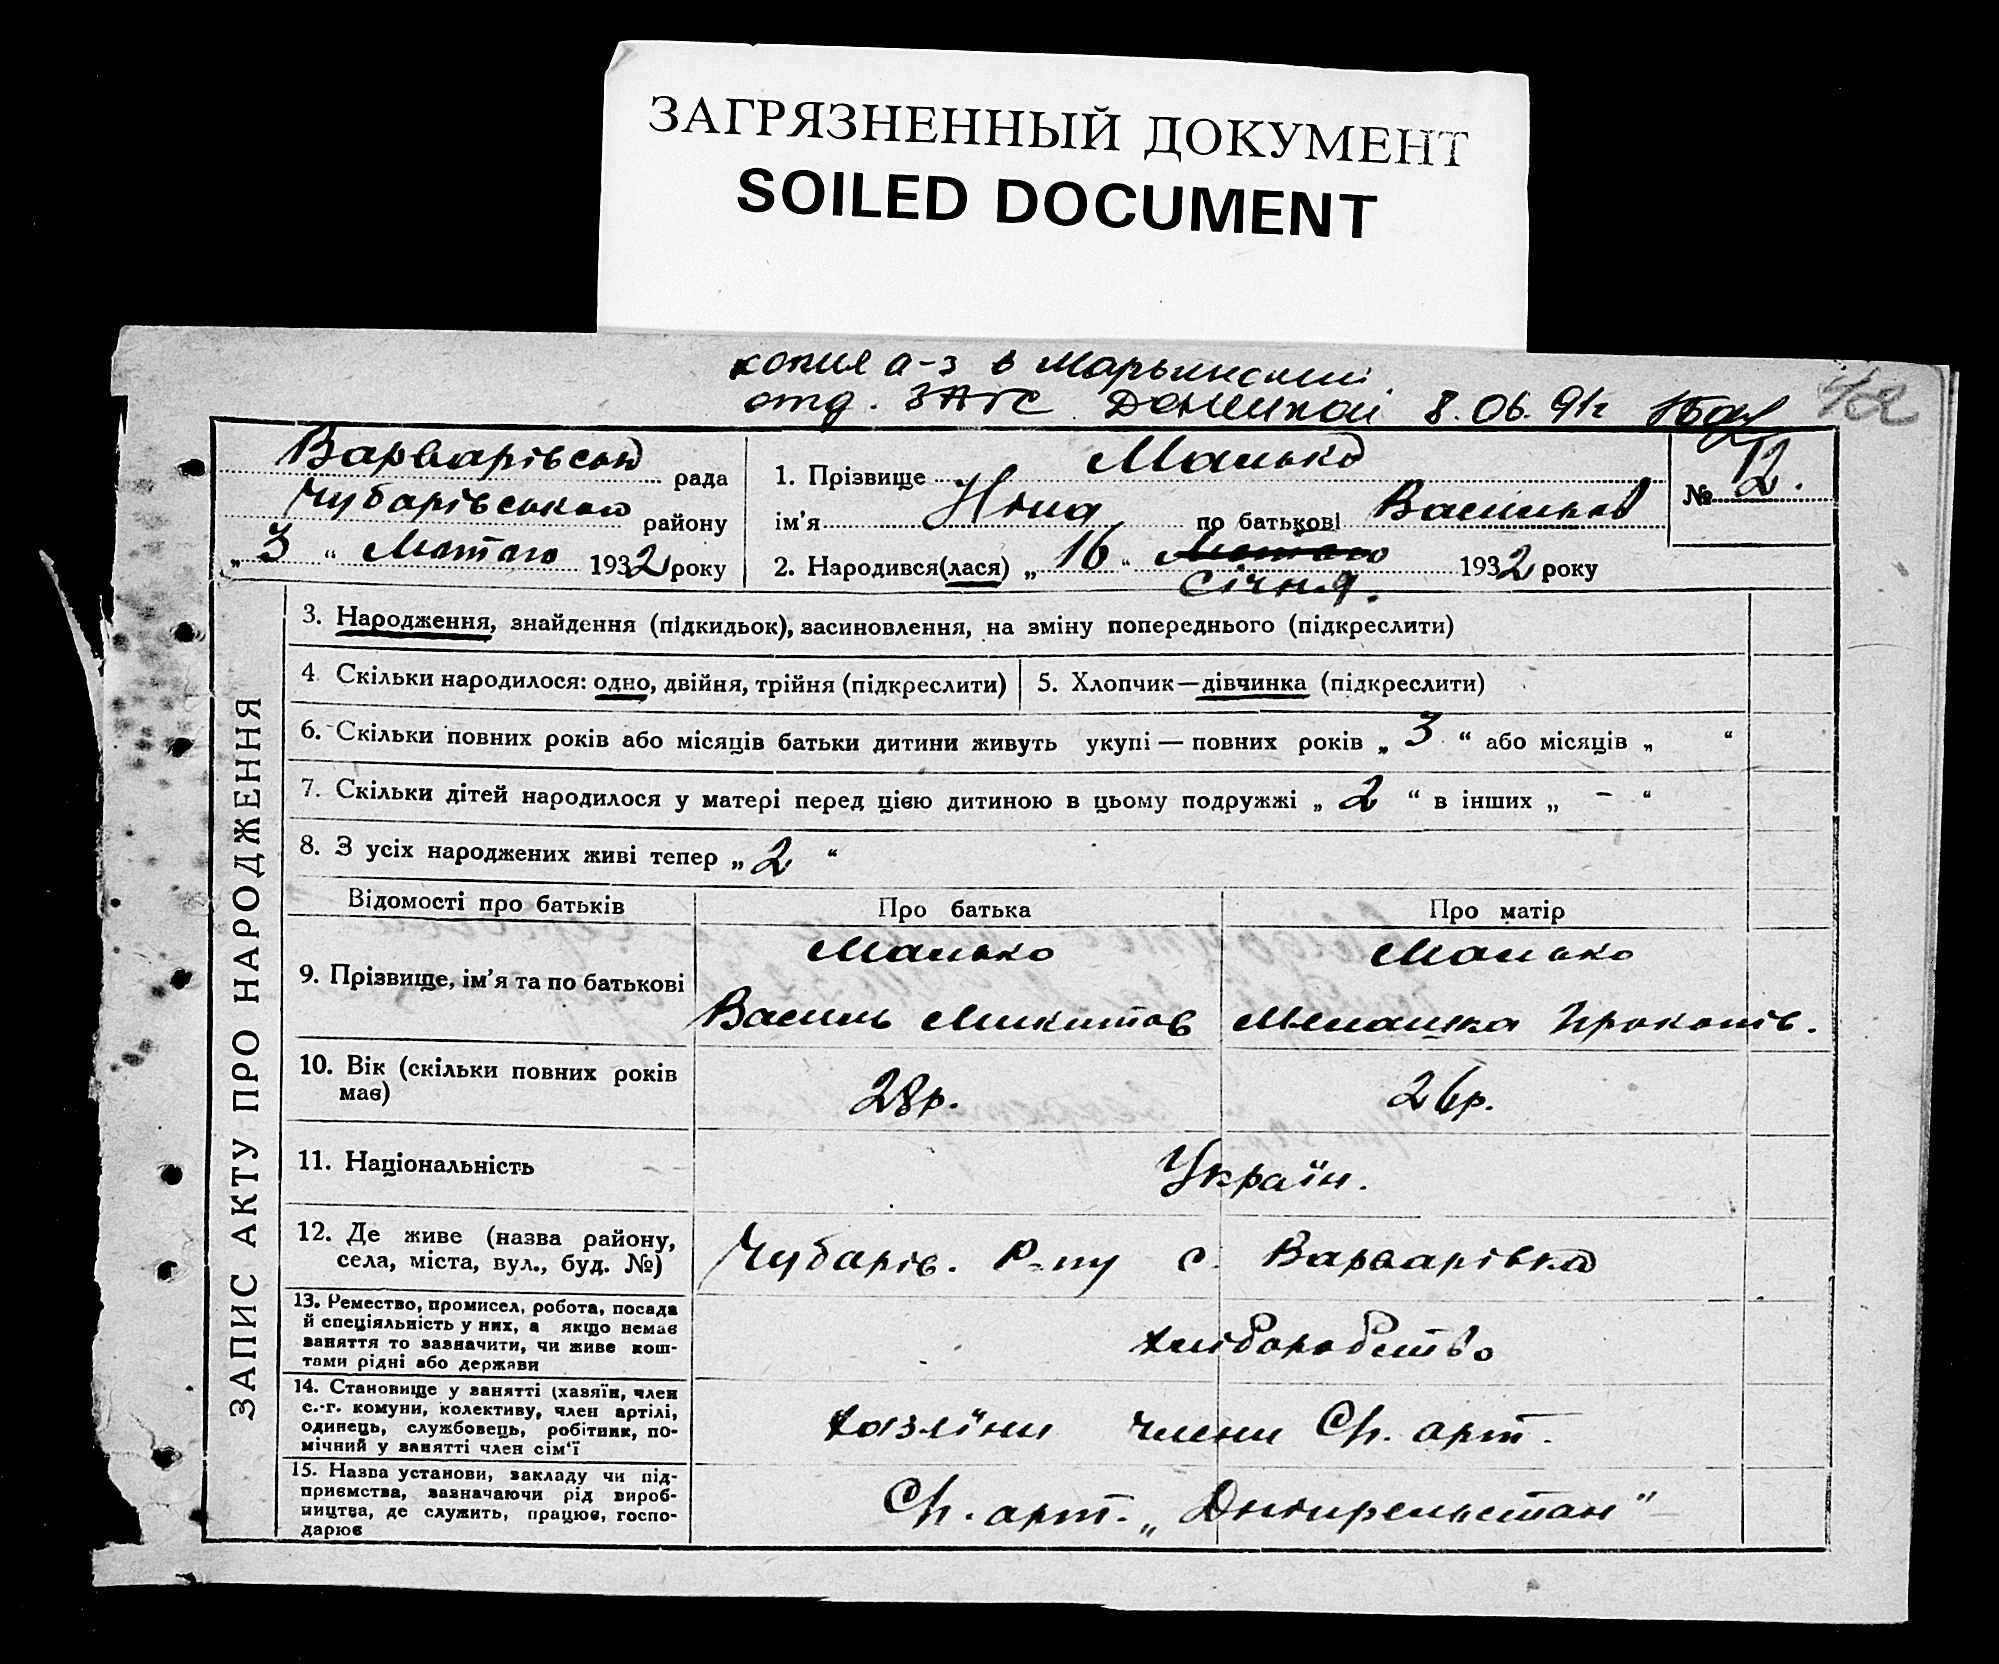 ЗАГРЯЗНЕННЫЙ ДОКУМЕНТ
SOILED DOCUMENT
копия а-з в Марьинский
отд. ЗАГС Донецкой 8.06.91г
42
Варварівська рада
Чубарівського району
„ 3 “ Лютого 1932 року
1. Прізвище Манько
ім’я Ніна по батькові Васильов
№ 12.
2. Народився(лася) „ 16 “ Лютого 1932 року
січня.
ЗАПИС АКТУ ПРО НАРОДЖЕННЯ
3. Народження, знайдення (підкидьок), засиновлення, на зміну попереднього (підкреслити)
4. Скільки народилося: одно, двійня, трійня (підкреслити)
5. Хлопчик—дівчинка (підкреслити)
6. Скільки повних років або місяців батьки дитини живуть укупі — повних років „ 3 “ або місяців „ “
7. Скільки дітей народилося у матері перед цією дитиною в цьому подружжі „ 2 “ в інших „ - “
8. З усіх народжених живі тепер „ 2 “
Відомості про батьків Про батька Про матір
9. Прізвище, ім’я та по батькові
Манько Манько
Василь Микитов Меланка Прокопів.
10. Вік (скільки повних років
має)
28р. 26р.
11. Національність
Україн.
12. Де живе (назва району,
села, міста, вул., буд. №)
Чубарів. р-ну с. Варварівка
13. Ремество, промисел, робота, посада
й спеціяльність у них, а якщо немає
заняття то зазначити, чи живе кош-
тами рідні або держави
хліборобство
14. Становище у занятті (хазяїн, член
с.-г. комуни, колективу, член артілі,
одинець, службовець, робітник, по-
мічний у занятті член сім’ї
хазяїни члени Сг. арт.
15. Назва установи, закладу чи під-
приємства, зазначаючи рід вироб-
ництва, де служить, працює, госпо-
дарює
Сг. арт. „Дніпрельстан“